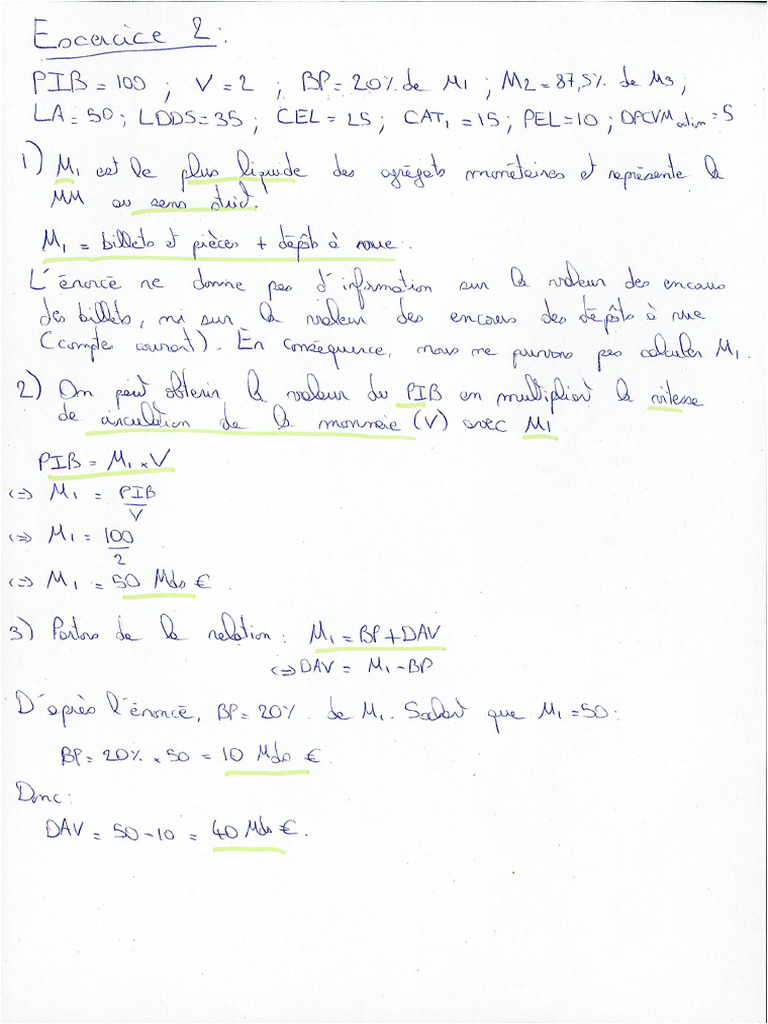 Exercice 2 :
PIB = 100 ; V = 2 ; BP = 20% de M1 ; M2 = 87,5% de M3 ;
LA = 50 ; LDDS = 35 ; CEL = 25 ; CAT1 = 15 ; PEL = 10 ; OPCVM action = 5
1) M1 est le plus liquide des agrégats monétaires et représente la
MM au sens strict.
M1 = billets et pièces + dépôt à vue.
L'énoncé ne donne pas d'information sur la valeur des encours
des billets, ni sur la valeur des encours des dépôts à vue
(comptes courant). En conséquence, nous ne pouvons pas calculer M1.
2) On peut obtenir la valeur du PIB en multipliant la vitesse
de circulation de la monnaie (V) avec M1
PIB = M1 × V
<=> M1 = PIB / V
<=> M1 = 100 / 2
<=> M1 = 50 Mds €.
3) Partons de la relation : M1 = BP + DAV
<=> DAV = M1 - BP
D'après l'énoncé, BP = 20% de M1. Sachant que M1 = 50 :
BP = 20% × 50 = 10 Mds €.
Donc :
DAV = 50 - 10 = 40 Mds €.